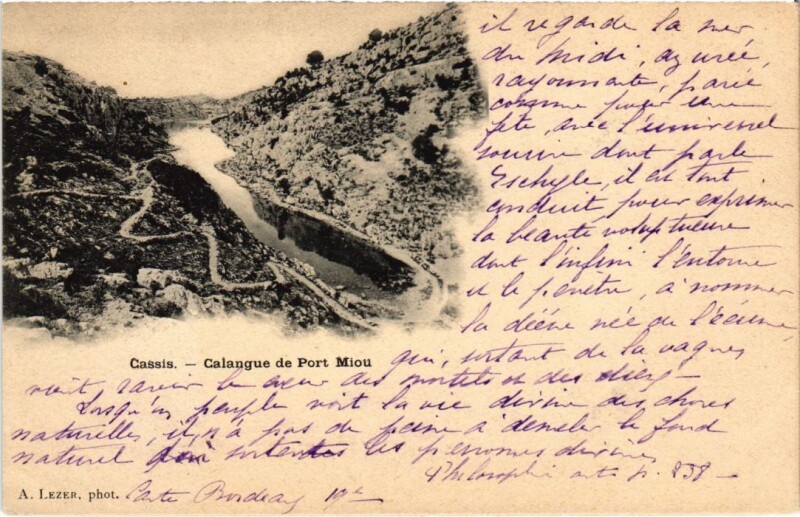 il regarde la mer
du midi, azurée,
rayonnante, parée
comme pour une
fête, avec l'universel
sourire dont parle
Eschyle, il est tout
conduit pour exprimer
la beauté voluptueuse
dont l'infini l'entoure
et le pénètre, à nommer
la déesse née de l'écume,
qui, sortant de la vague,
vient ravir le cœur des mortels et des dieux —
Lorsqu'un peuple voit la vie divine des choses
naturelles, il n'a pas de peine à démêler le fond
naturel d'où sortent les personnes divines
Philosophie art p. 238 —
Cassis. — Calangue de Port Miou
A. Lezer, phot.
Carte Bordeaux